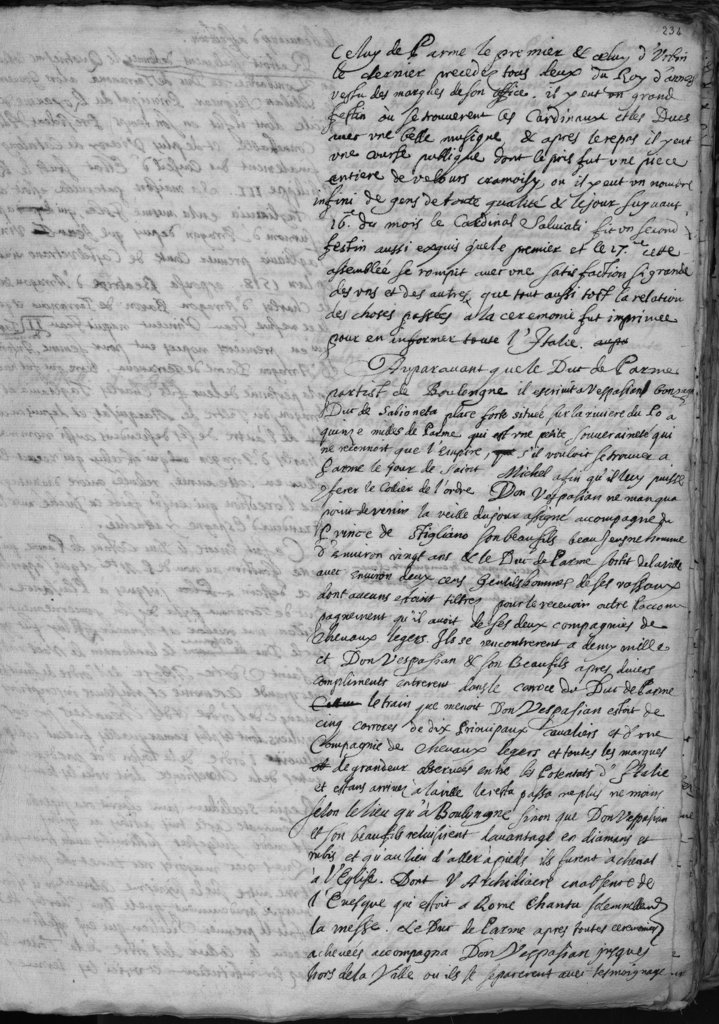 234
Celuy de Parme le premier & celuy d'Urbin
le dernier precedez tous deux du Roy d'armes
vestu des marques de son office. il y eut un grand
festin où se trouverent les Cardinaux et les Ducs
avec une belle musique & apres le repas il y eut
une course publique dont le pris fut une piece
entiere de velours cramoisy, ou il y eut un nombre
infini de gens de toute qualité & le jour suyvant
16. du mois le Cardinal Salviati fit un second
festin aussi exquis que le premier et le 17. cette
assemblée se rompit avec une satisfaction si grande
des uns et des autres, que tout aussi tost la relation
des choses passées a la ceremonie fut imprimée
pour en informer toute l'Italie.
Auparavant que le Duc de Parme
partist de Boulongne il escrivit a Vespasian Gonzague
Duc de Sabioneta place forte située sur la riviere du Po a
quinze milles de Parme qui est une petite souveraineté qui
ne reconnoit que l'empire, s'il vouloit se trouver a
Parme le jour de Saint Michel afin qu'il luy puisse
conferer le Collier de l'ordre Don Vespasian ne manqua
de venir la veille du jour assigné accompagné du
Prince de Stigliano son beaufils beau jeune homme
d'environ vingt ans & le Duc de Parme sortit de la ville
avec environ deux cens gentilshommes de ses vassaux
dont aucuns estoient tiltrez pour le recevoir outre l'accom
pagnement qu'il avoit de ses deux compagnies de
chevaux legers. Ils se rencontrerent a demy mille
et Don Vespasian & son Beaufils apres divers
compliments entrerent dans le carroce du Duc de Parme
le train que menoit Don Vespasian estoit de
cinq carroces de dix Principaux cavaliers et d'une
Compagnie de chevaux legers et toutes les marques
de grandeur observées entre les Potentats d'Italie
et estans arrivez a la ville le reste passa ne plus ne moins
selon le lieu qu'à Boulongne sinon que Don Vespasian
et son beaufils reluisirent davantage en diamans et
rubis et qu'au lieu d'aller à pieds ils furent a cheval
à l'Eglise. Dont l'Archidiacre en absence de
l'Evesque qui estoit a Rome Chanta solemnellement
la messe. Le Duc de Parme apres toutes ceremonies
achevées accompagna Don Vespasian jusques
hors de la Ville ou ils se separerent avec tesmoignage